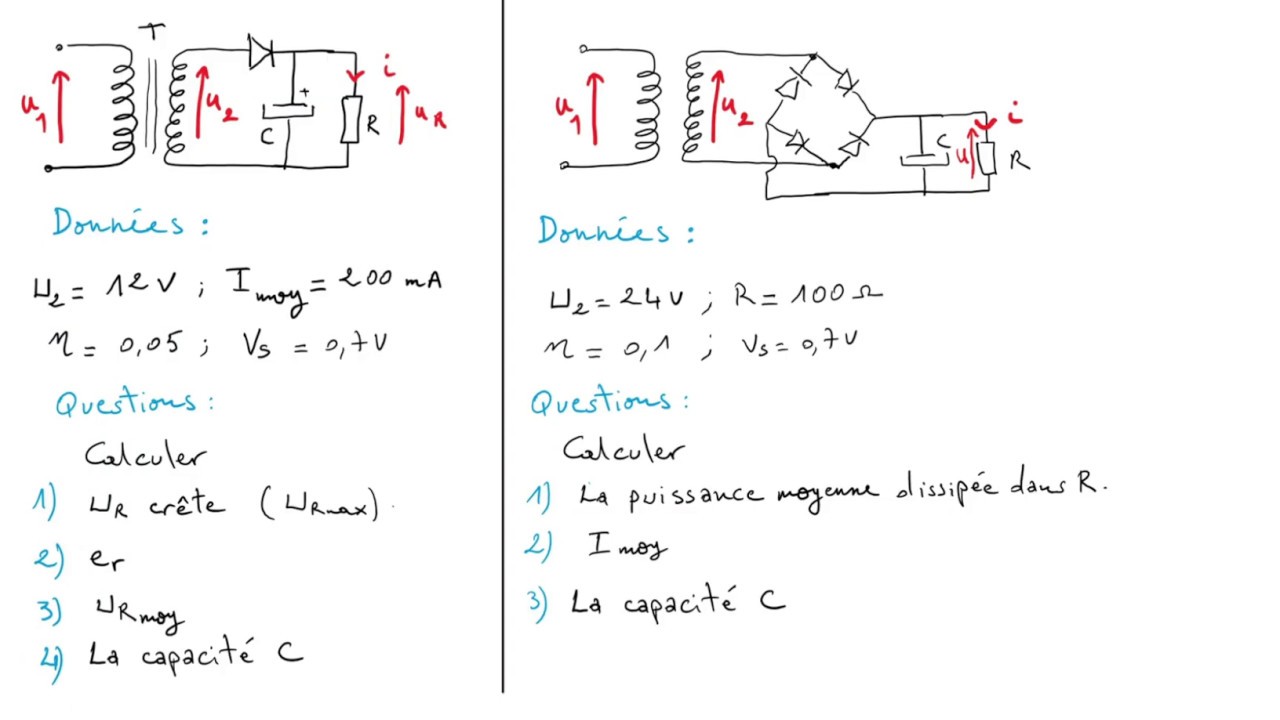 T
u1
u2
C
+
R
i
uR
Données :
U2 = 12 V ; Imoy = 200 mA
η = 0,05 ; Vs = 0,7 V
Questions :
Calculer
1) UR crête (URmax).
2) er
3) URmoy
4) La capacité C
u1
u2
C
u
i
R
Données :
U2 = 24 V ; R = 100 Ω
η = 0,1 ; Vs = 0,7 V
Questions :
Calculer
1) La puissance moyenne dissipée dans R.
2) Imoy
3) La capacité C